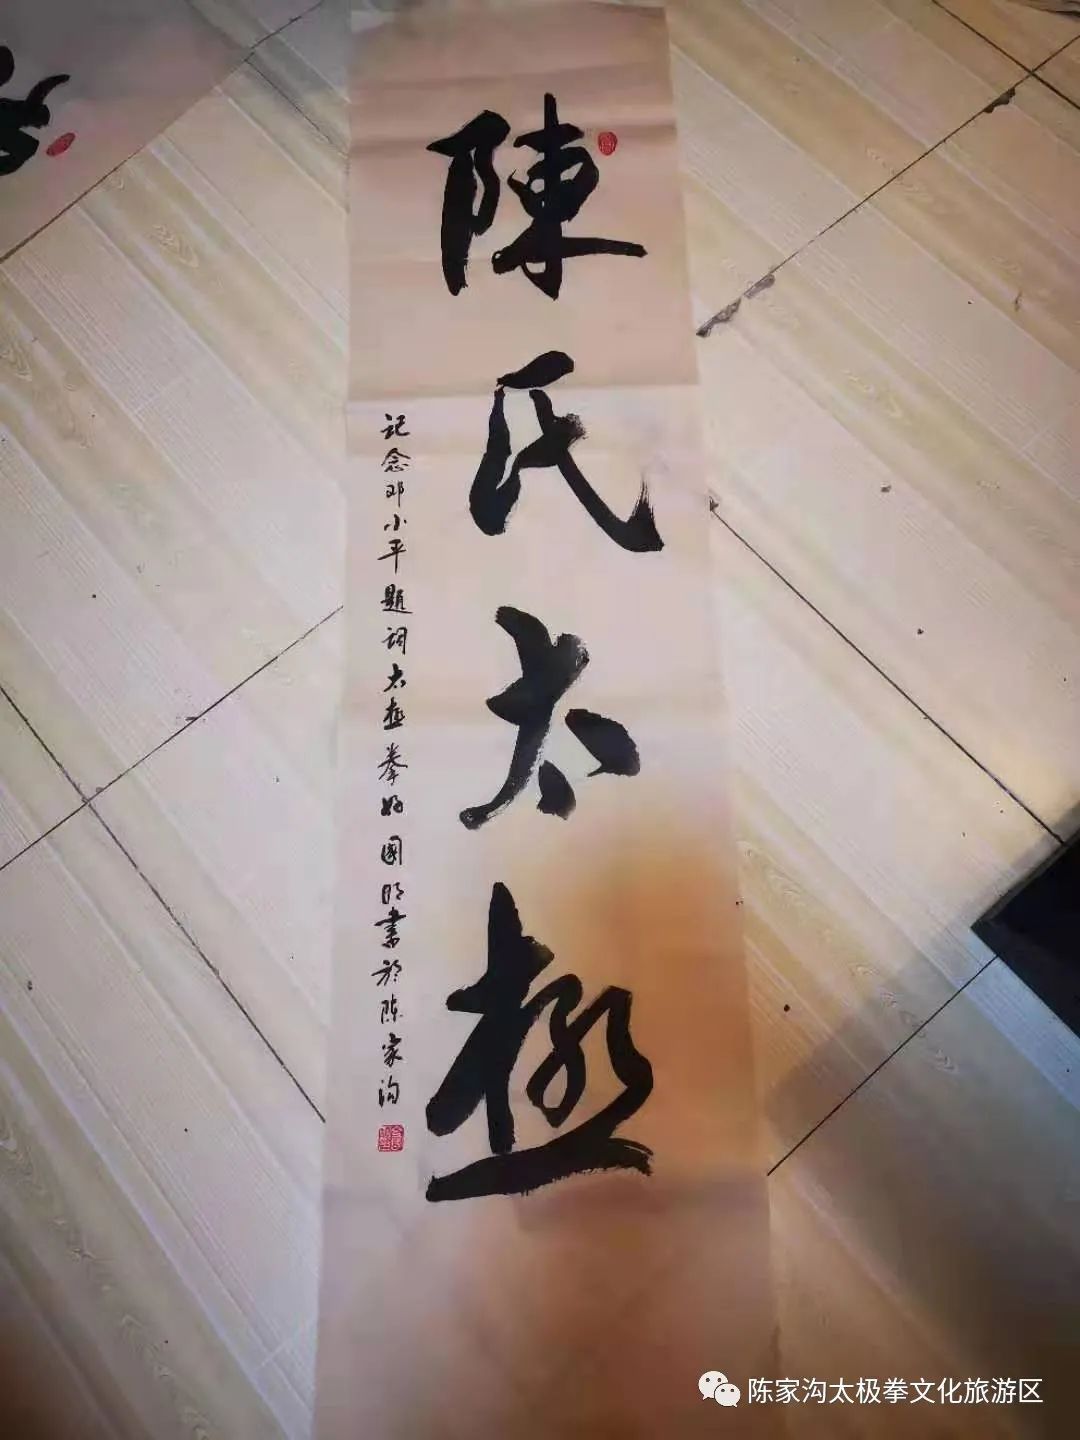 陳氏太極
记念邓小平题词太极拳好国明书於陈家沟
陈家沟太极拳文化旅游区